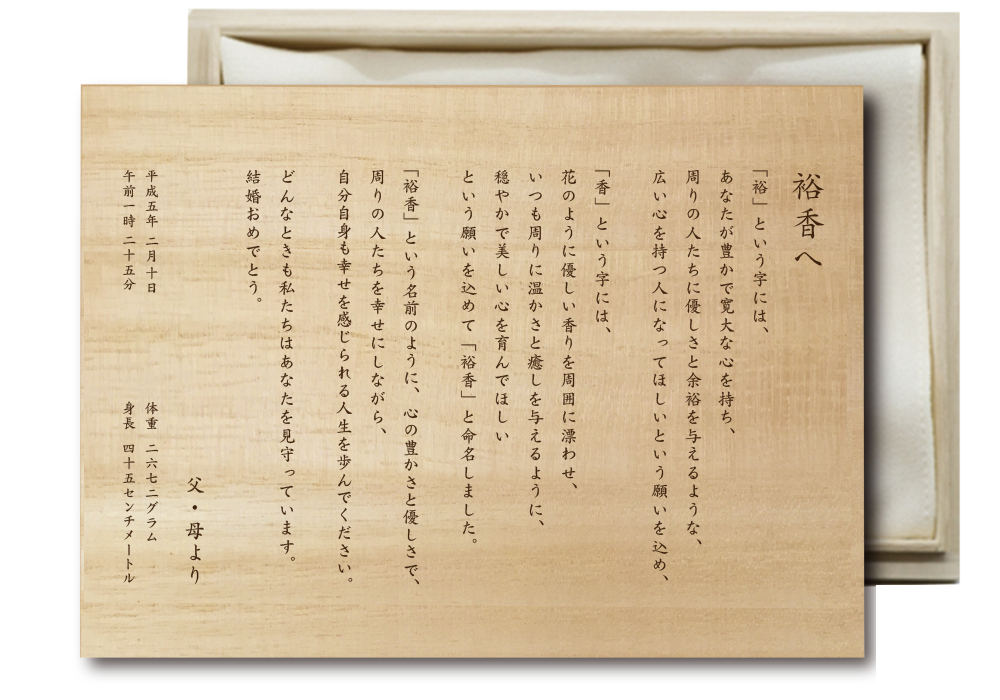 裕香へ
「裕」という字には、
あなたが豊かで寛大な心を持ち、
周りの人たちに優しさと余裕を与えるような、
広い心を持つ人になってほしいという願いを込め、
「香」という字には、
花のように優しい香りを周囲に漂わせ、
いつも周りに温かさと癒しを与えるように、
穏やかで美しい心を育んでほしい
という願いを込めて「裕香」と命名しました。
「裕香」という名前のように、心の豊かさと優しさで、
周りの人たちを幸せにしながら、
自分自身も幸せを感じられる人生を歩んでください。
どんなときも私たちはあなたを見守っています。
結婚おめでとう。
父・母より
平成五年 二月十日
午前一時 二十五分
体重 二六七二グラム
身長 四十五センチメートル